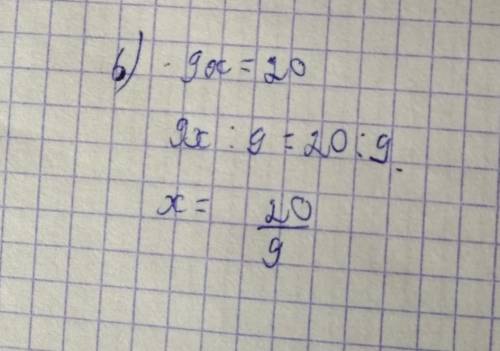 б) 9x = 20
9x : 9 = 20 : 9.
x = 20/9